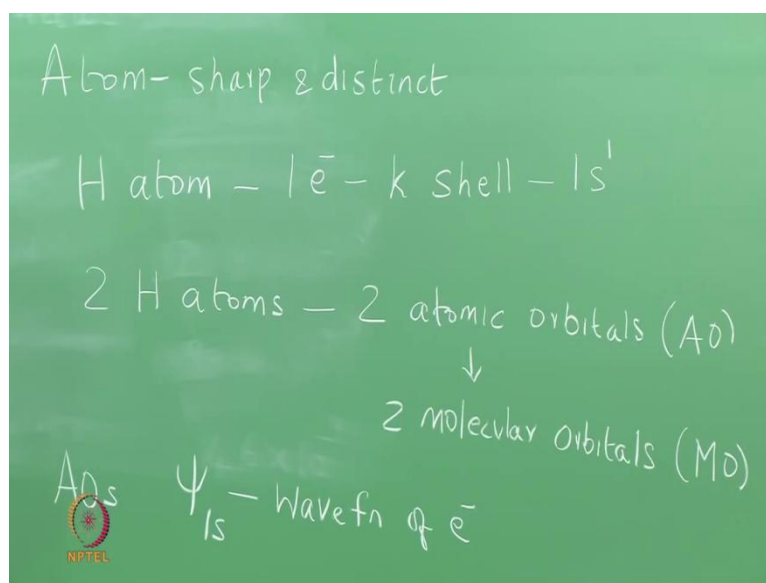 Atom - sharp & distinct
H atom - 1 e⁻ - K shell - 1s¹
2 H atoms - 2 atomic orbitals (AO)
↓
2 molecular orbitals (MO)
AOs Ψ1s - Wavefn of e⁻
NPTEL